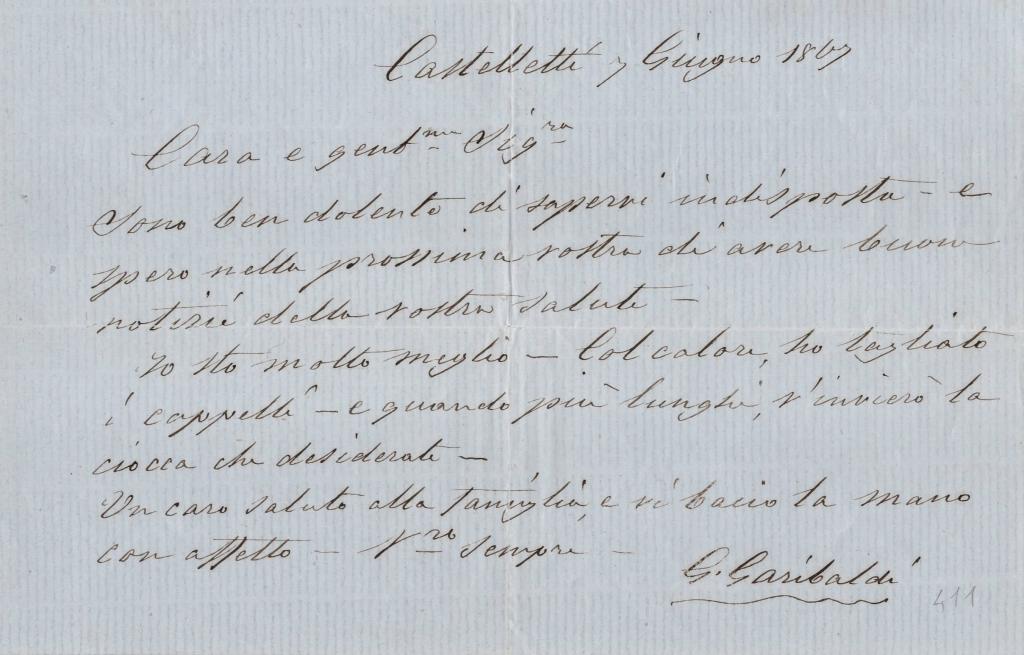 Castelletti 7 Giugno 1867
Cara e gent.ma Sig.ra
Sono ben dolente di sapervi indisposta - e
spero nella prossima vostra di avere buone
notizie della vostra salute -
Io sto molto meglio - Col calore, ho tagliato
i cappelli - e quando più lunghi, v'invierò la
ciocca che desiderate -
Un caro saluto alla famiglia, e vi bacio la mano
con affetto - V.ro sempre -
G. Garibaldi
411